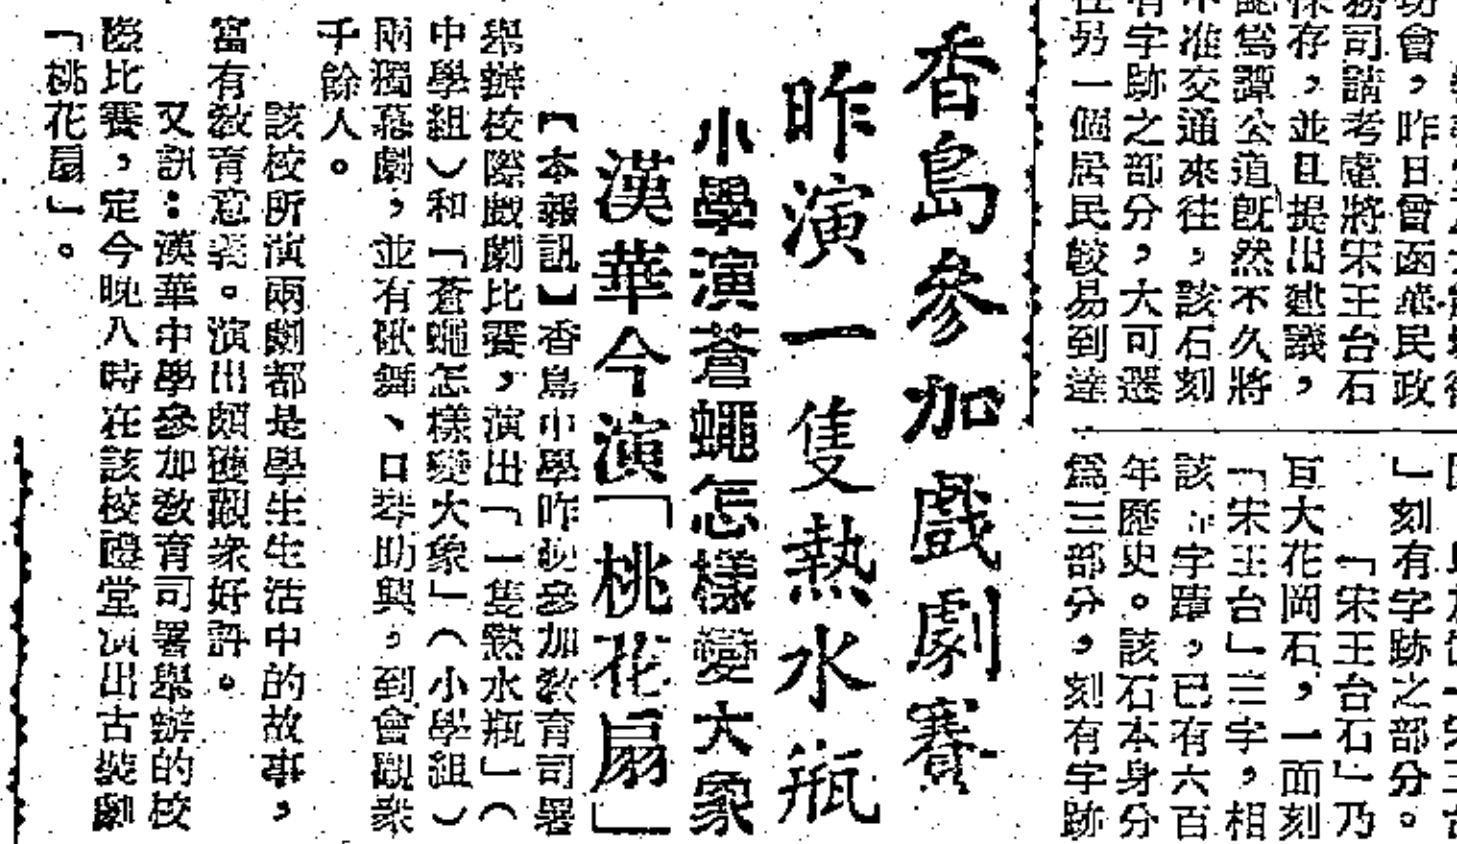 會，昨日曾函華民政
務司請考慮將宋王台石
保存，並且提出建議，
爲譚公道旣然不久將
不准交通來往，該石刻
有字跡之部分，大可選
在另一個居民較易到達
」刻有字跡之部分。
「宋王台石」乃
亘大花岡石，一面刻
「宋王台」三字，相
該字蹟，已有六百
年歷史。該石本身分
爲三部分，刻有字跡
香島參加戲劇賽
昨演一隻熱水瓶
小學演蒼蠅怎樣變大象
漢華今演「桃花扇」
【本報訊】香島中學昨晚參加敎育司署
舉辦校際戲劇比賽，演出「一隻熱水瓶」（
中學組）和「蒼蠅怎樣變大象」（小學組）
兩獨幕劇，並有歌舞、口琴助興，到會觀衆
千餘人。
該校所演兩劇都是學生生活中的故事，
富有敎育意義。演出頗獲觀衆好評。
又訊：漢華中學參加敎育司署舉辦的校
際比賽，定今晚八時在該校禮堂演出古裝劇
「桃花扇」。